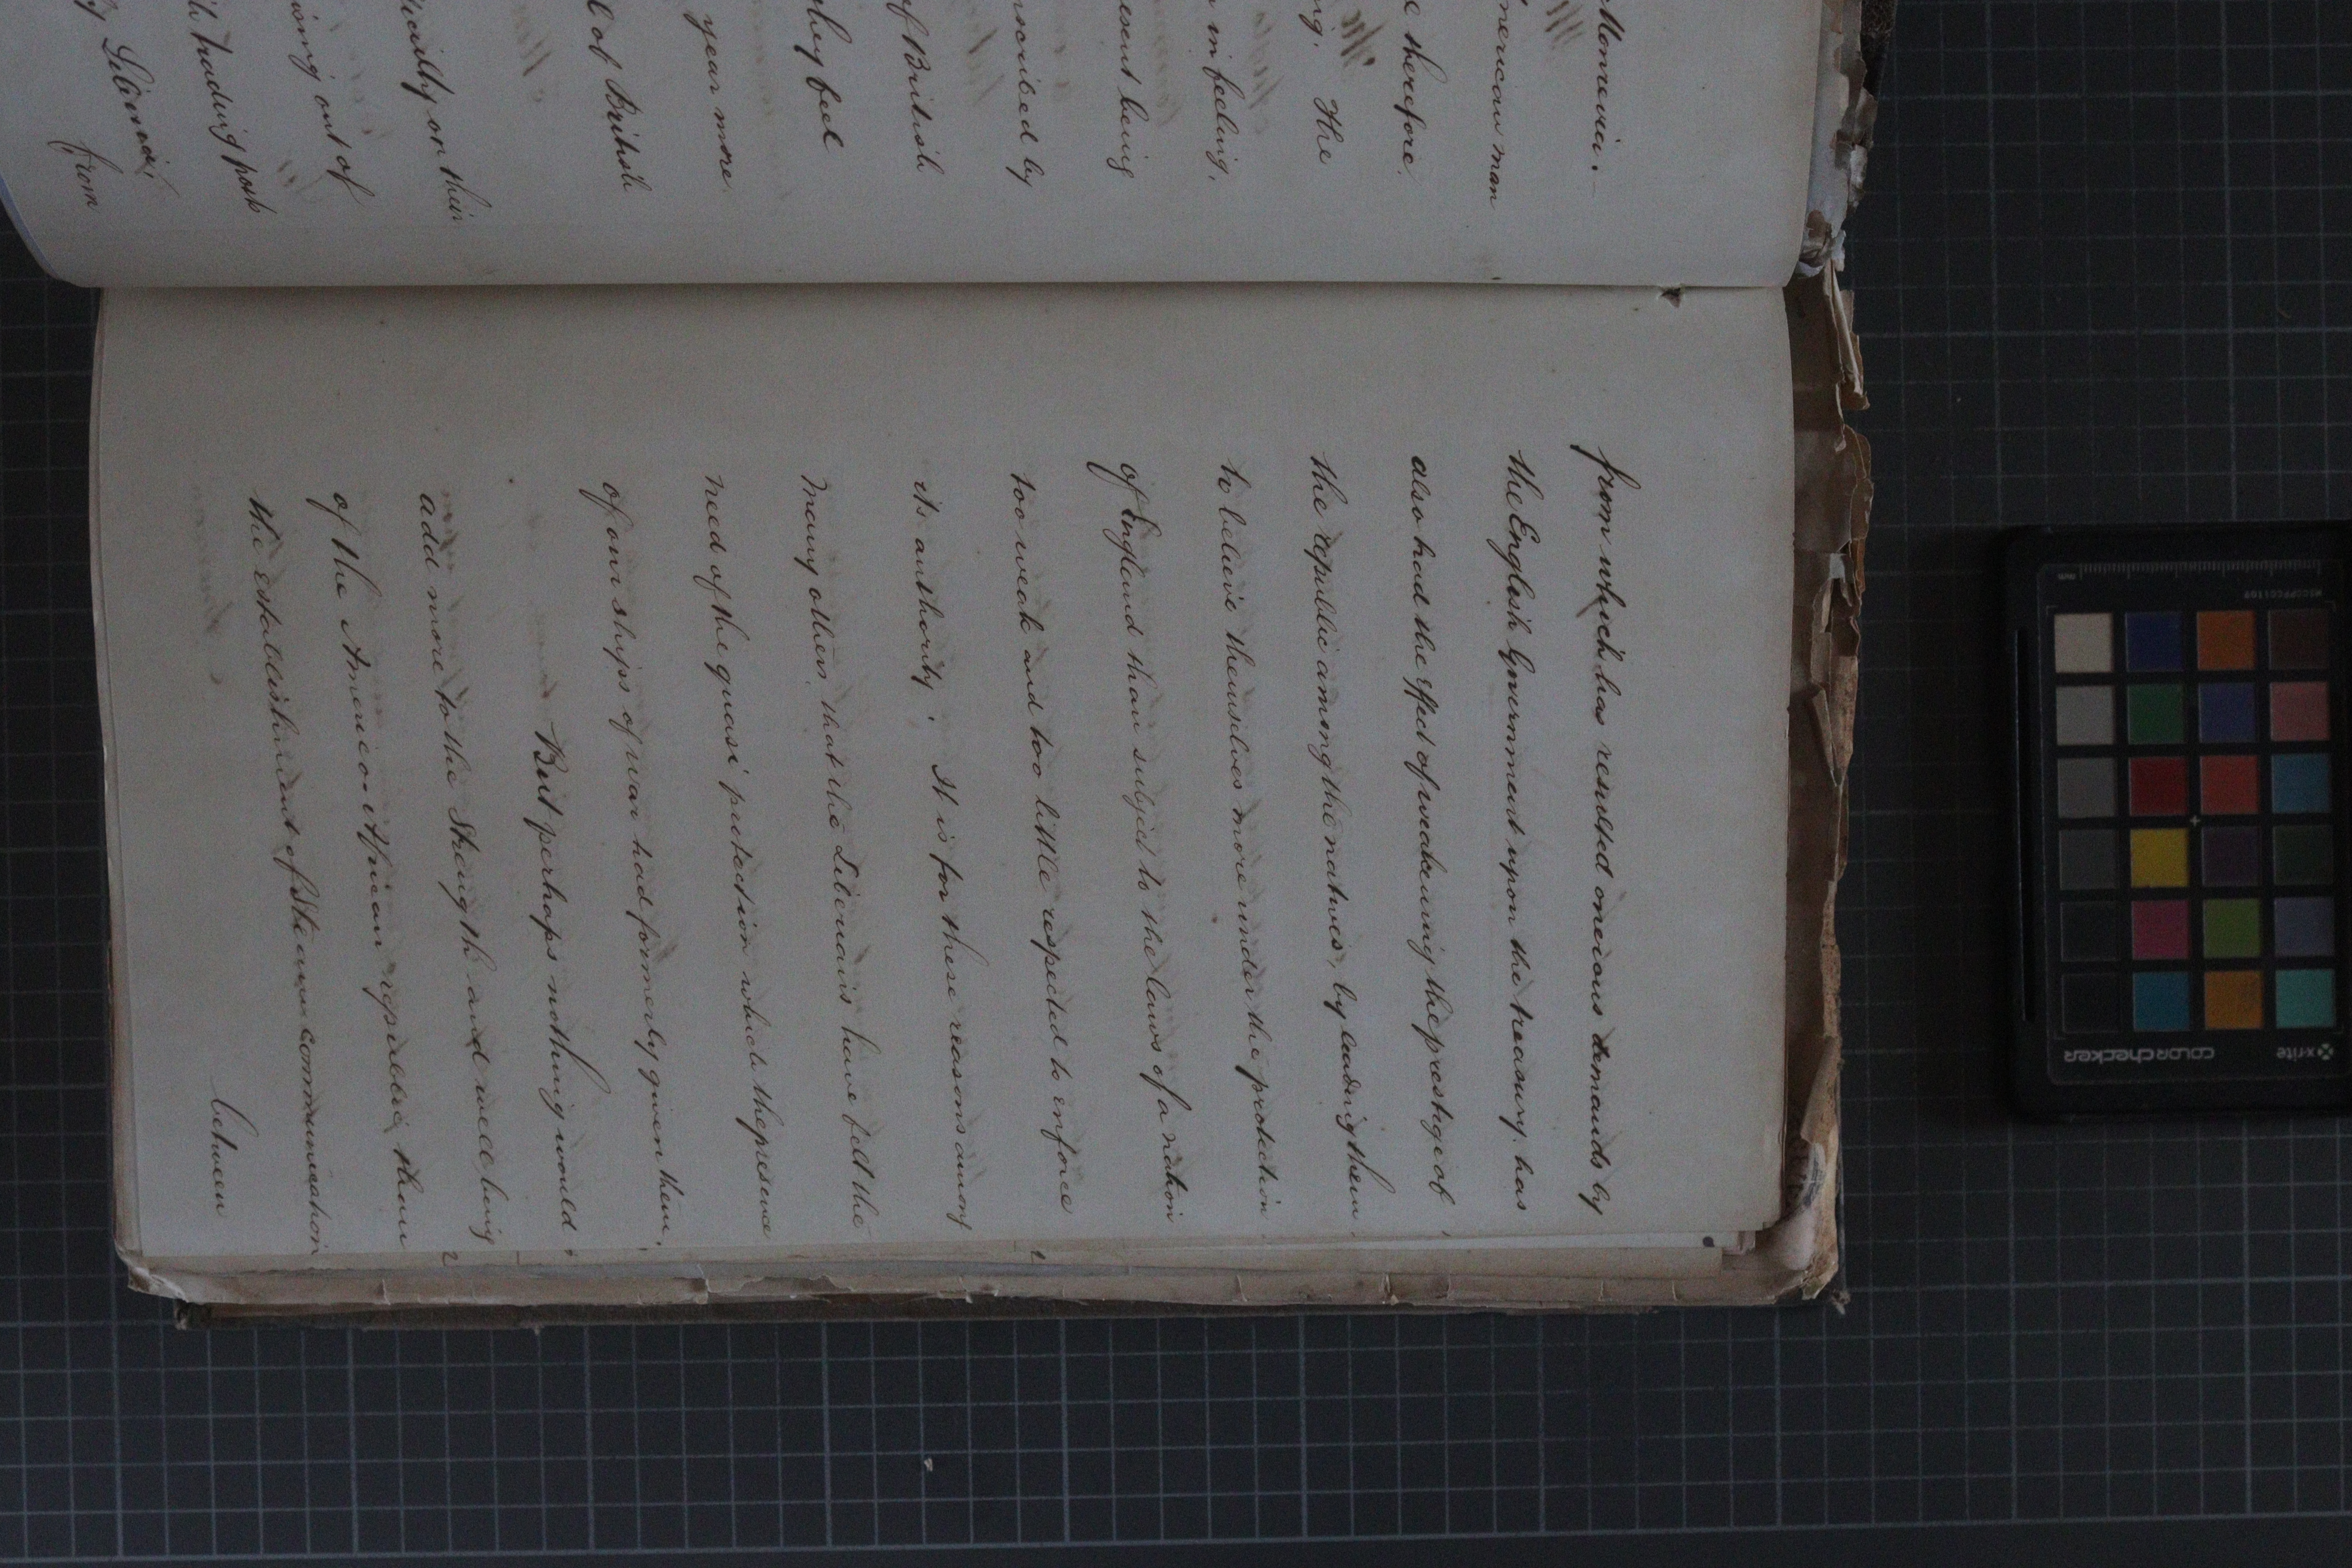 Monrovia. -
American man
therefore.
The
in feeling,
being
by
of British
they feel
year more
of British
on their
out of
trading posts
by Liberia
from
from which has resulted onerious demands by
the English Government upon the treasury, has
also had the effect of weakening the prestige of
the republic among the natives, by leading them
to believe themselves more under the protection
of England than subject to the laws of a nation
too weak and too little respected to enforce
its authority. It is for these reasons among
many others, that the Liberians have felt the
need of the quasi protection which the presence
of our ships of war had formerly given them.
But perhaps nothing would
add more to the strength and well being
of the American African republic than
the establishment of steam communication
between
x-rite
colorchecker
mm